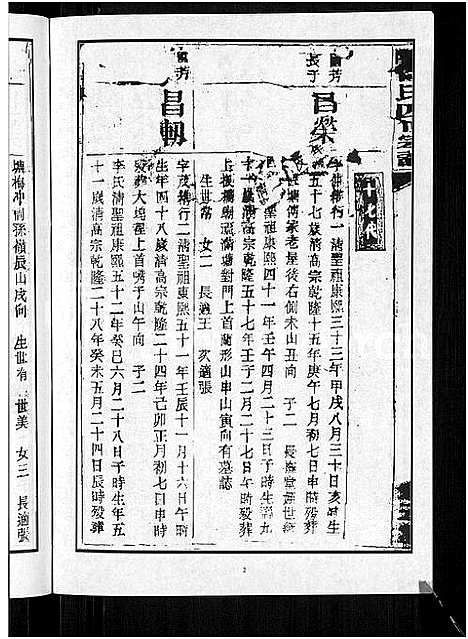 氏四修宗譜
十七代
芳
長子
昌榮
行一清聖祖康熙三十三年甲戌八月三十日亥時生
五十七歲清高宗乾隆十五年庚午七月初七日申時殁葬
塘傅家老屋後右側未山丑向 子二 長
聖祖康熙四十一年壬午四月二十三日子時生 九
清高宗乾隆五十七年壬子二月初七日申時殁葬
上 滿塘對門上首蘭形山申山寅向有墓誌
生世常 女二 長適王 次適張
芳
昌朝
字茂 行二清聖祖康熙五十一年壬辰十一月十六日午時
生年四十八歲清高宗乾隆二十四年己卯正月初七日午時
殁葬大塢裡上首嘴子山午向 子二
李氏清聖祖康熙五十二年癸巳六月二十八日子時生年五
十一歲清高宗乾隆二十八年癸未五月二十四日辰時殁葬
塘梅冲南孫嶺辰山戌向 生世有 世美 女三 長適張
2